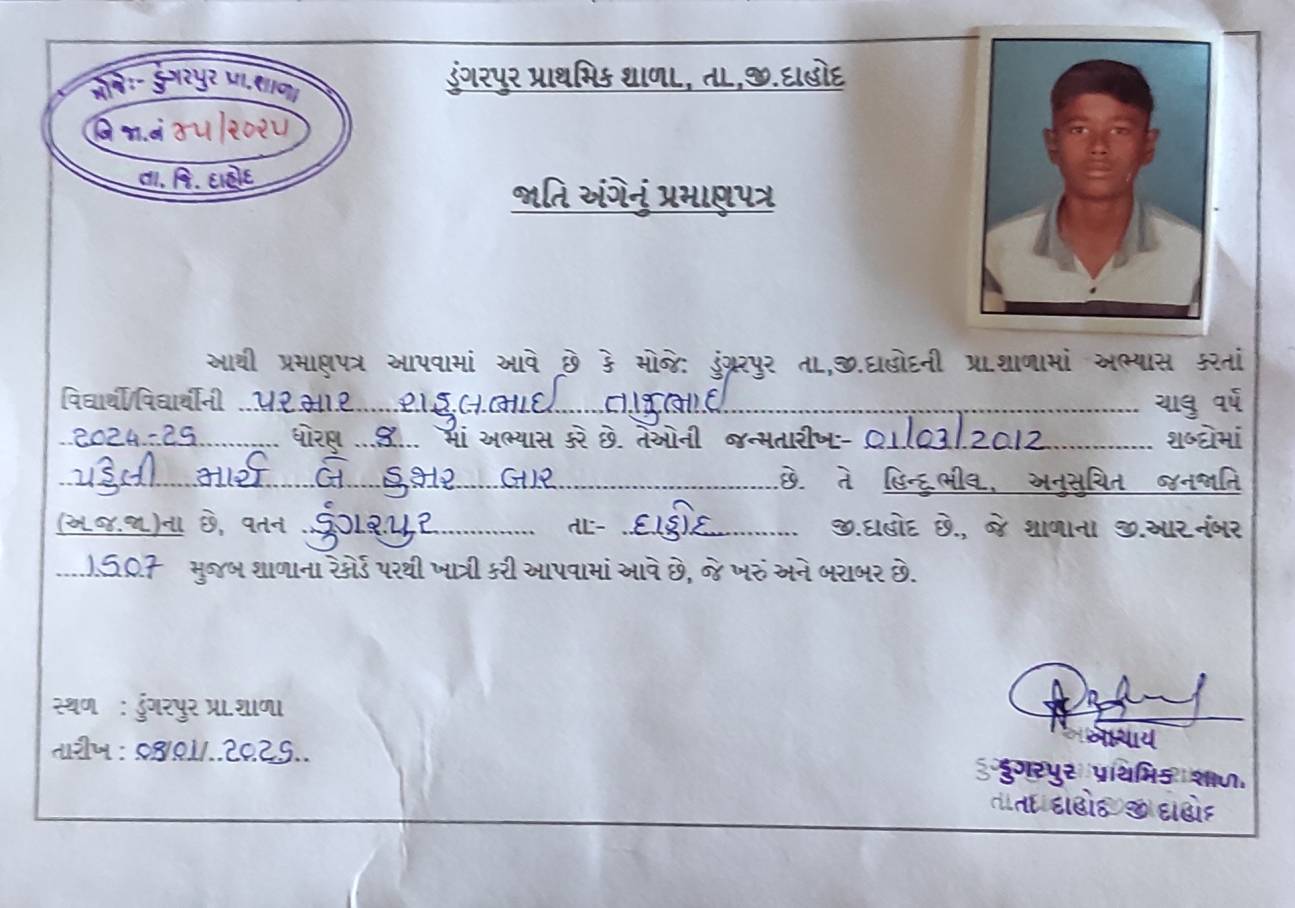 મોજેઃ- ડુંગરપુર પ્રા.શાળા
વિ જા.નં ૪૫/૨૦૨૫
તા. જિ. દાહોદ
ડુંગરપુર પ્રાથમિક શાળા, તા,જી.દાહોદ
જાતિ અંગેનું પ્રમાણપત્ર
આથી પ્રમાણપત્ર આપવામાં આવે છે કે મોજેઃ ડુંગરપુર તા,જી.દાહોદની પ્રા.શાળામાં અભ્યાસ કરતાં
વિદ્યાર્થી/વિદ્યાર્થીની ..પરમાર......રાહુલભાઈ......તાજુભાઈ.......... ચાલુ વર્ષ
..2024-25........... ધોરણ ...8... માં અભ્યાસ કરે છે. તેઓની જન્મતારીખઃ- 01/03/2012............... શબ્દોમાં
..પહેલી.....માર્ચ.....બે.....હજાર.....બાર..............................છે. તે હિન્દુ ભીલ, અનુસુચિત જનજાતિ
(અ.જ.જા)ના છે, વતન ..ડુંગરપુર.............. તાઃ- ..દાહોદ............. જી.દાહોદ છે., જે શાળાના જી.આર.નંબર
.....1507 મુજબ શાળાના રેકોર્ડ પરથી ખાત્રી કરી આપવામાં આવે છે, જે ખરું અને બરાબર છે.
સ્થળ : ડુંગરપુર પ્રા.શાળા
તારીખ : 08/01/..2025..
આચાર્ય
ડુંગરપુર પ્રાથમિક શાળા.
તા દાહોદ જી દાહોદ